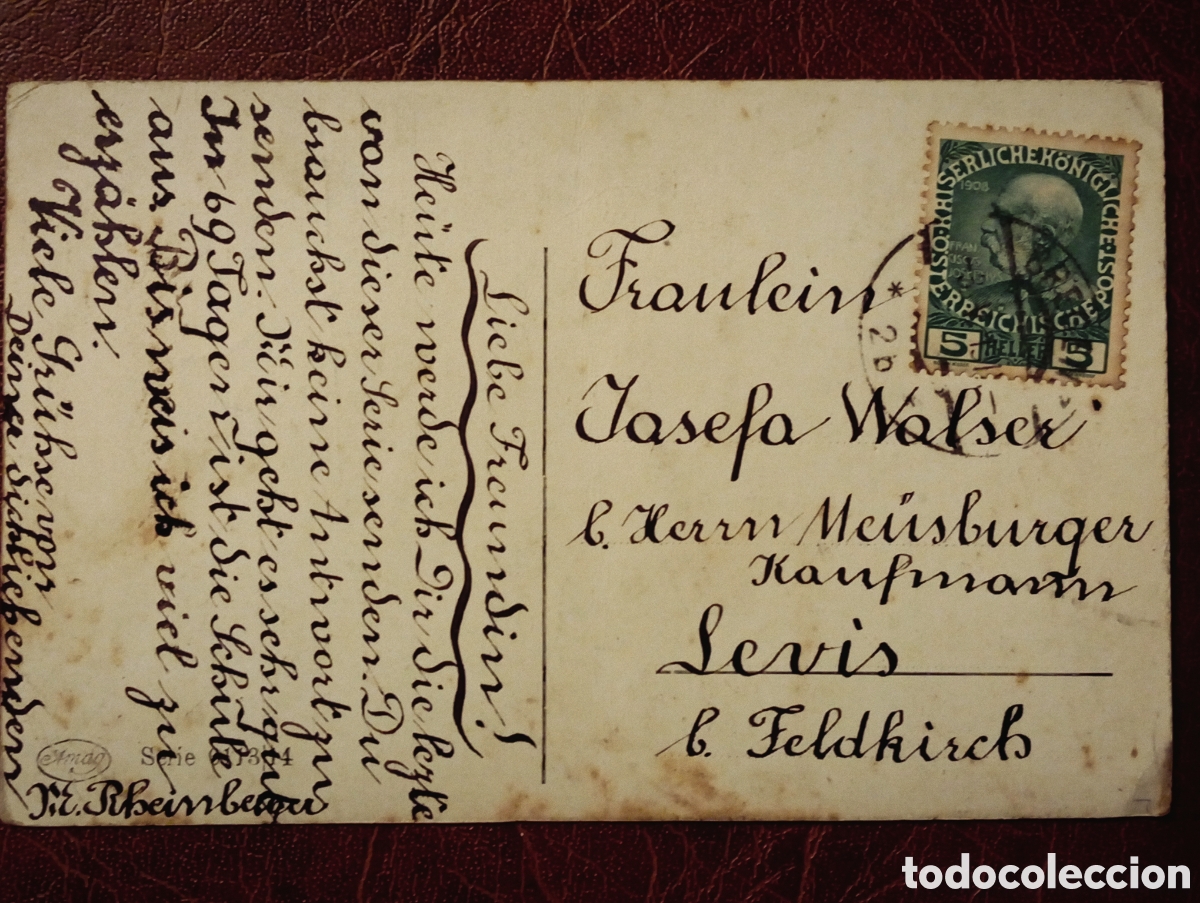 Liebe Freundin!
Heüte werde ich Dir die lezte
von dieser Serie senden. Du
brauchst keine Antwort zu
senden. Mir geht es sehr gut
In 69 Tagen ist die Schule
aus. Bis weis ich viel zu
erzählen.
Viele Grühsse von
Deiner dich liebenden
M. Rheinberger
Amag
Serie
Fraulein
Josefa Walser
b. Herrn Meüsburger
Kaufmann
Levis
b. Feldkirch
KAISERLICHE KÖNIGLICHE
ÖSTERREICHISCHE POST
1908
FRAN
CISCVS
IOSEPHVS
5 HELLER 5
todocoleccion